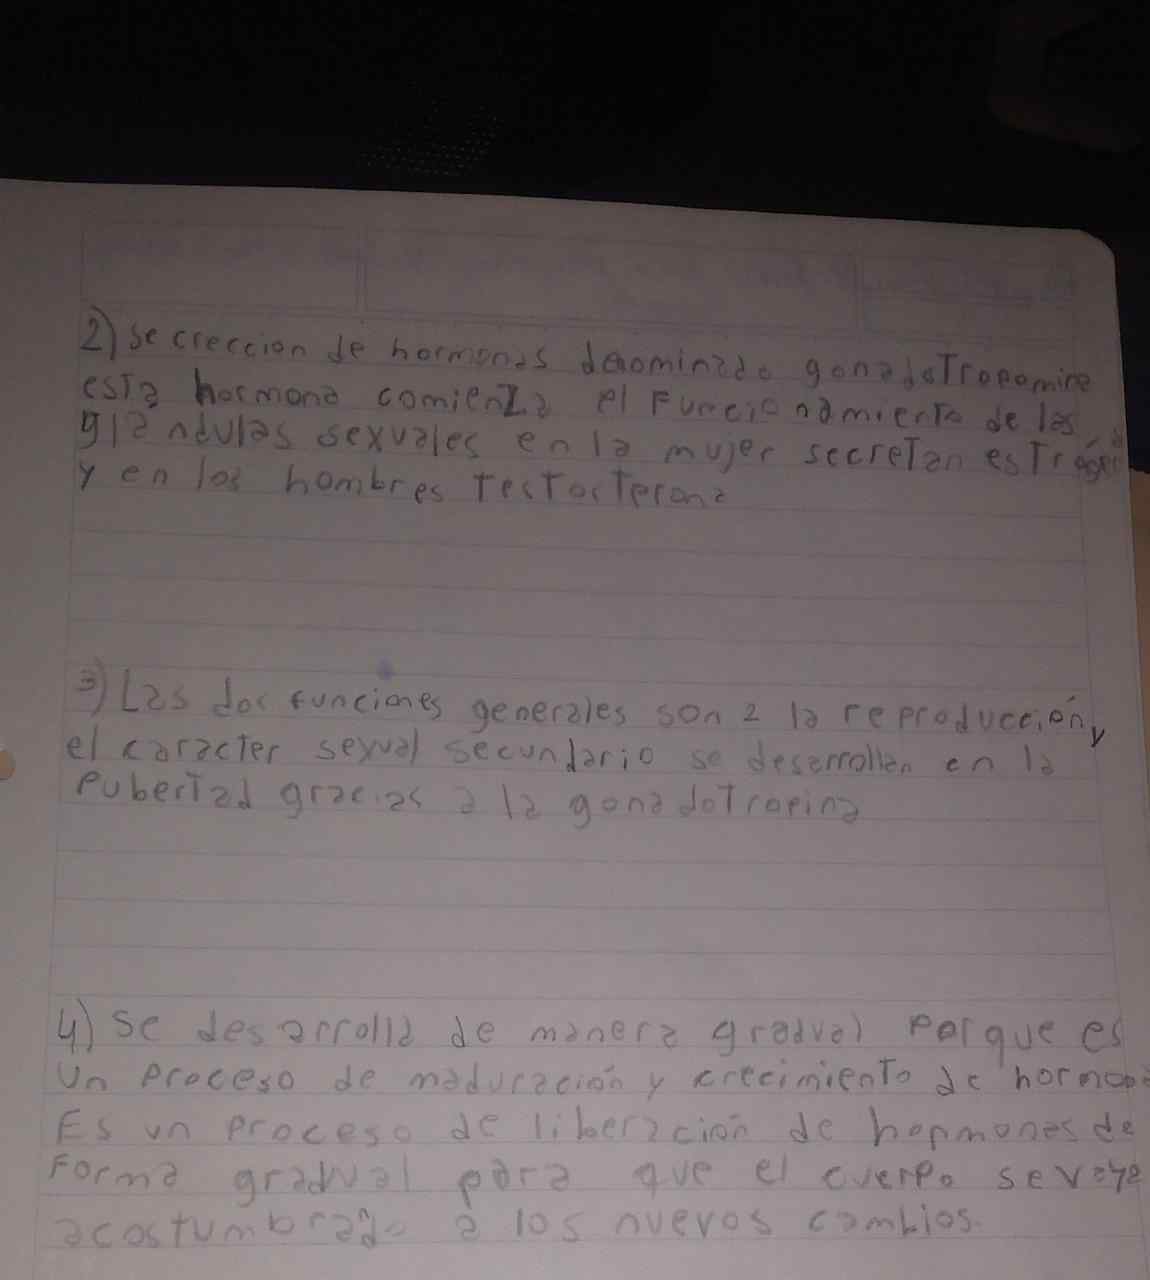 2) se creccion de hormonas denominado gonadotropomina
esta hormona comienza el Funcionamiento de las
glandulas sexuales en la mujer secretan estrógen
y en los hombres testosterona
3) Las dos funciones generales son 2 la reproducción y
el caracter sexual secundario se desarrollan en la
Pubertad gracias a la gonadotropina
4) Se desarrolla de manera gradual Porque es
Un Proceso de maduración y crecimiento de hormona
Es un Proceso de liberación de hormonas de
Forma gradual para que el cuerpo se vaya
acostumbrado a los nuevos cambios.